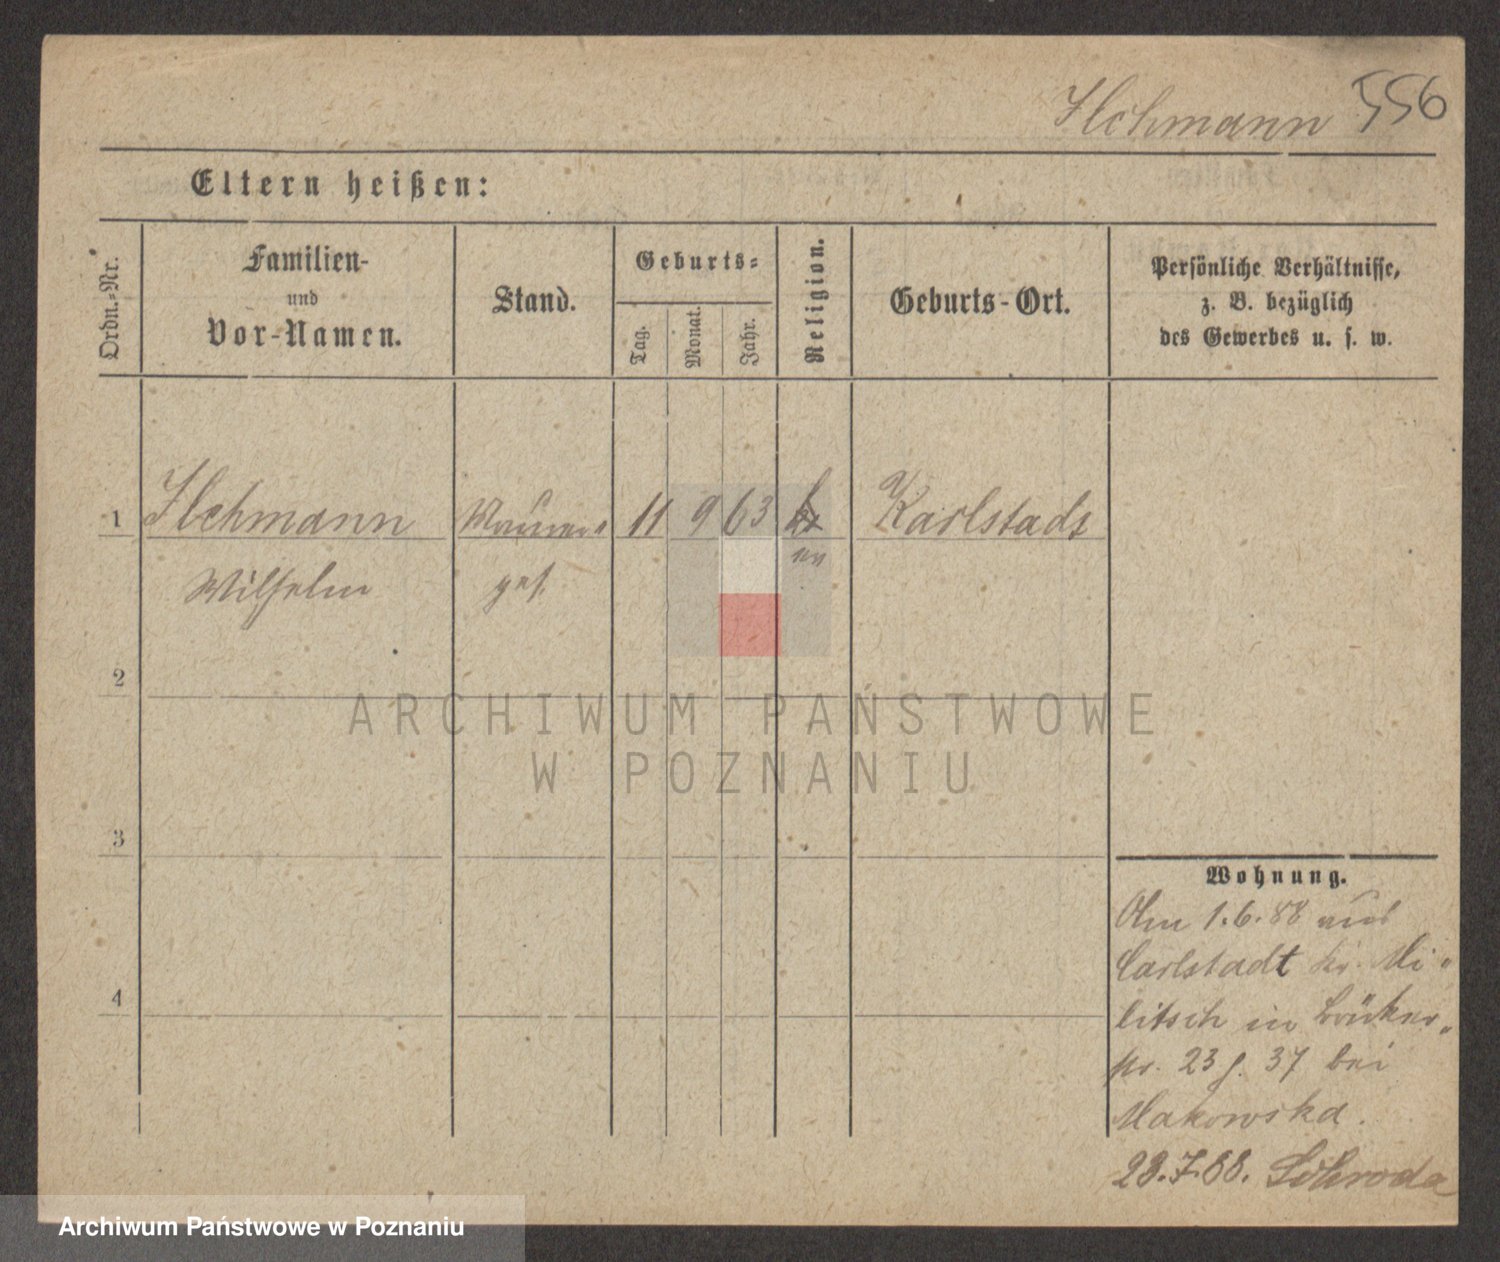 Ilchmann 556
Eltern heißen:
Ordn.-Nr.
Familien-
und
Vor-Namen.
Stand.
Geburts-
Tag.
Monat.
Jahr.
Religion.
Geburts-Ort.
Persönliche Verhältnisse,
z. B. bezüglich
des Gewerbes u. s. w.
1 Ilchmann Maurer- 11 9 63 Karlstadt
Wilhelm ges.
2
3
4
Wohnung.
1.6.88 aus
Carlstadt Kr. Mi-
litsch in
23 37 bei
Makowska.
28.7.88. Schroda
ARCHIWUM PAŃSTWOWE
W POZNANIU
Archiwum Państwowe w Poznaniu